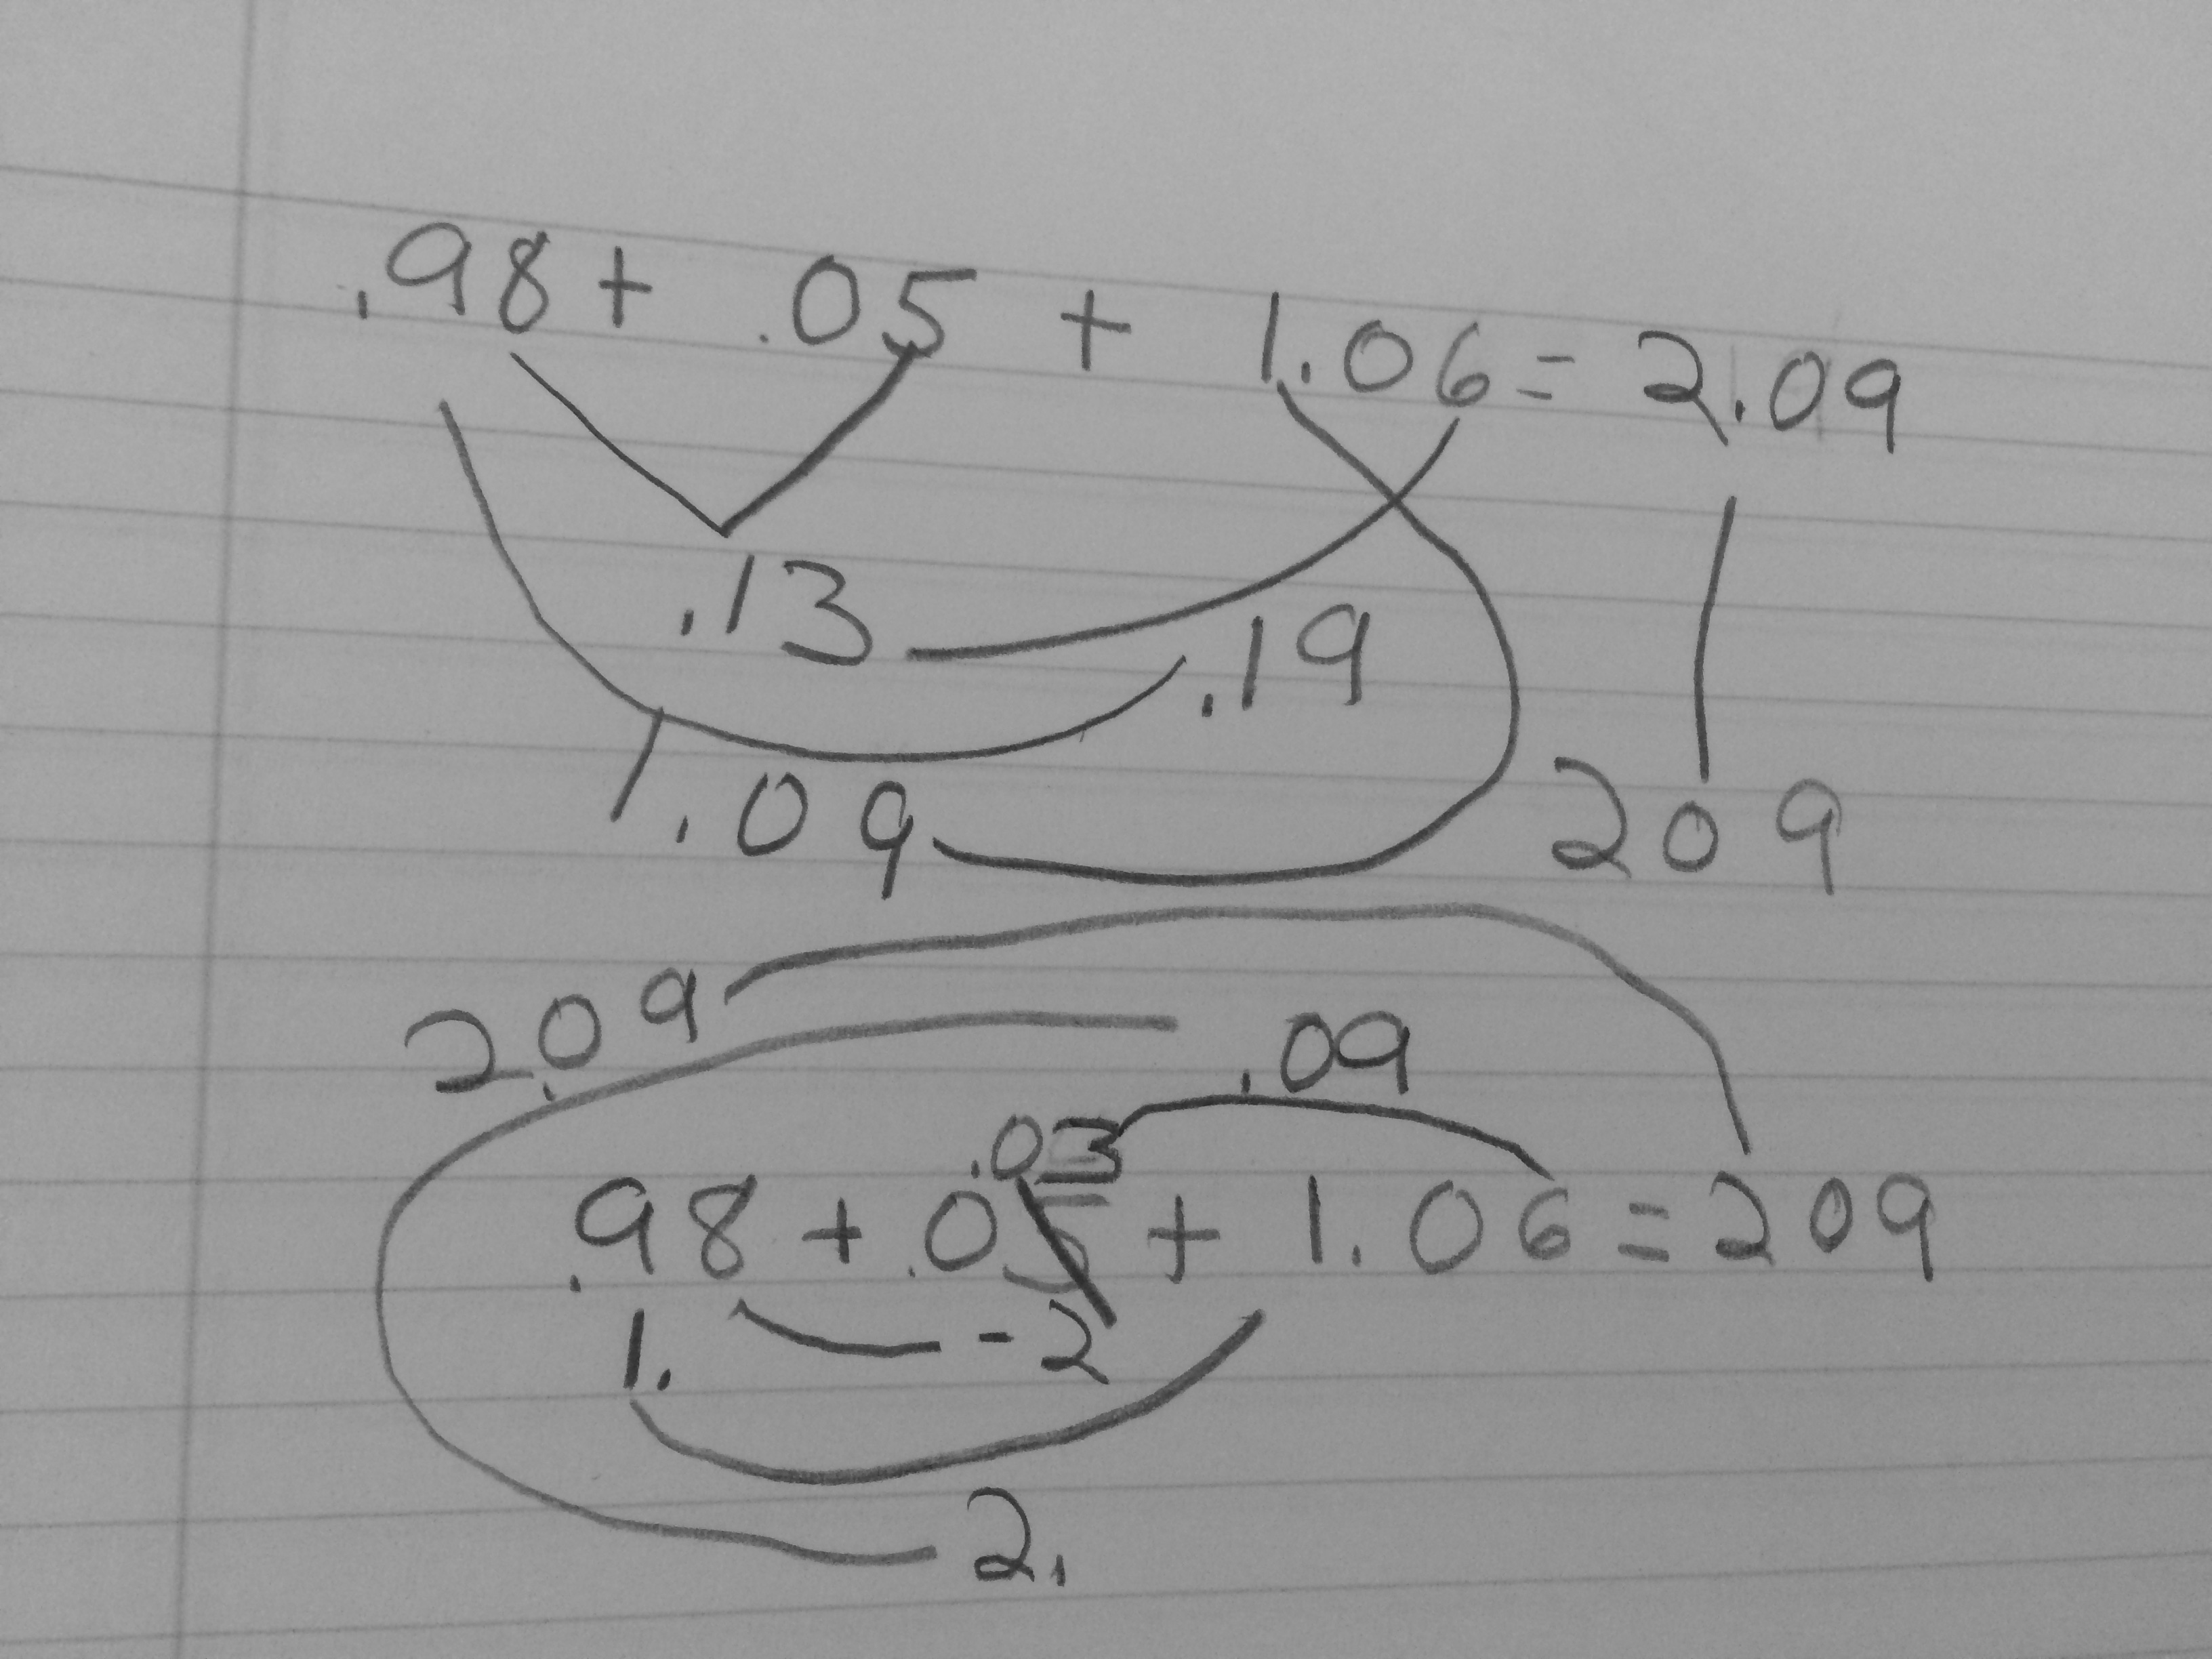 .98 + .05 + 1.06 = 2.09
.13
.19
1.09
209
2.09
.09
.03
.98 + .05 + 1.06 = 209
1.
-2
2.